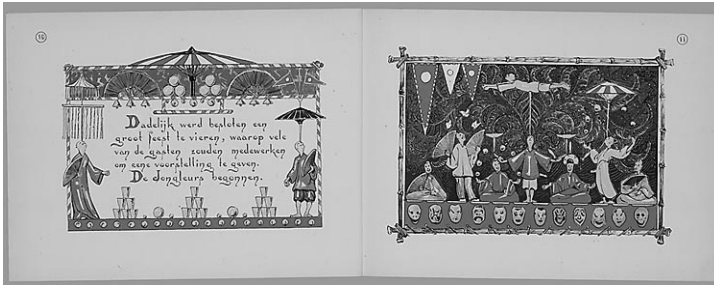 10
Dadelijk werd besloten een
groot feest te vieren, waarop vele
van de gasten zouden medewerken
om eene voorstelling te geven.
De dongleurs begonnen.
11